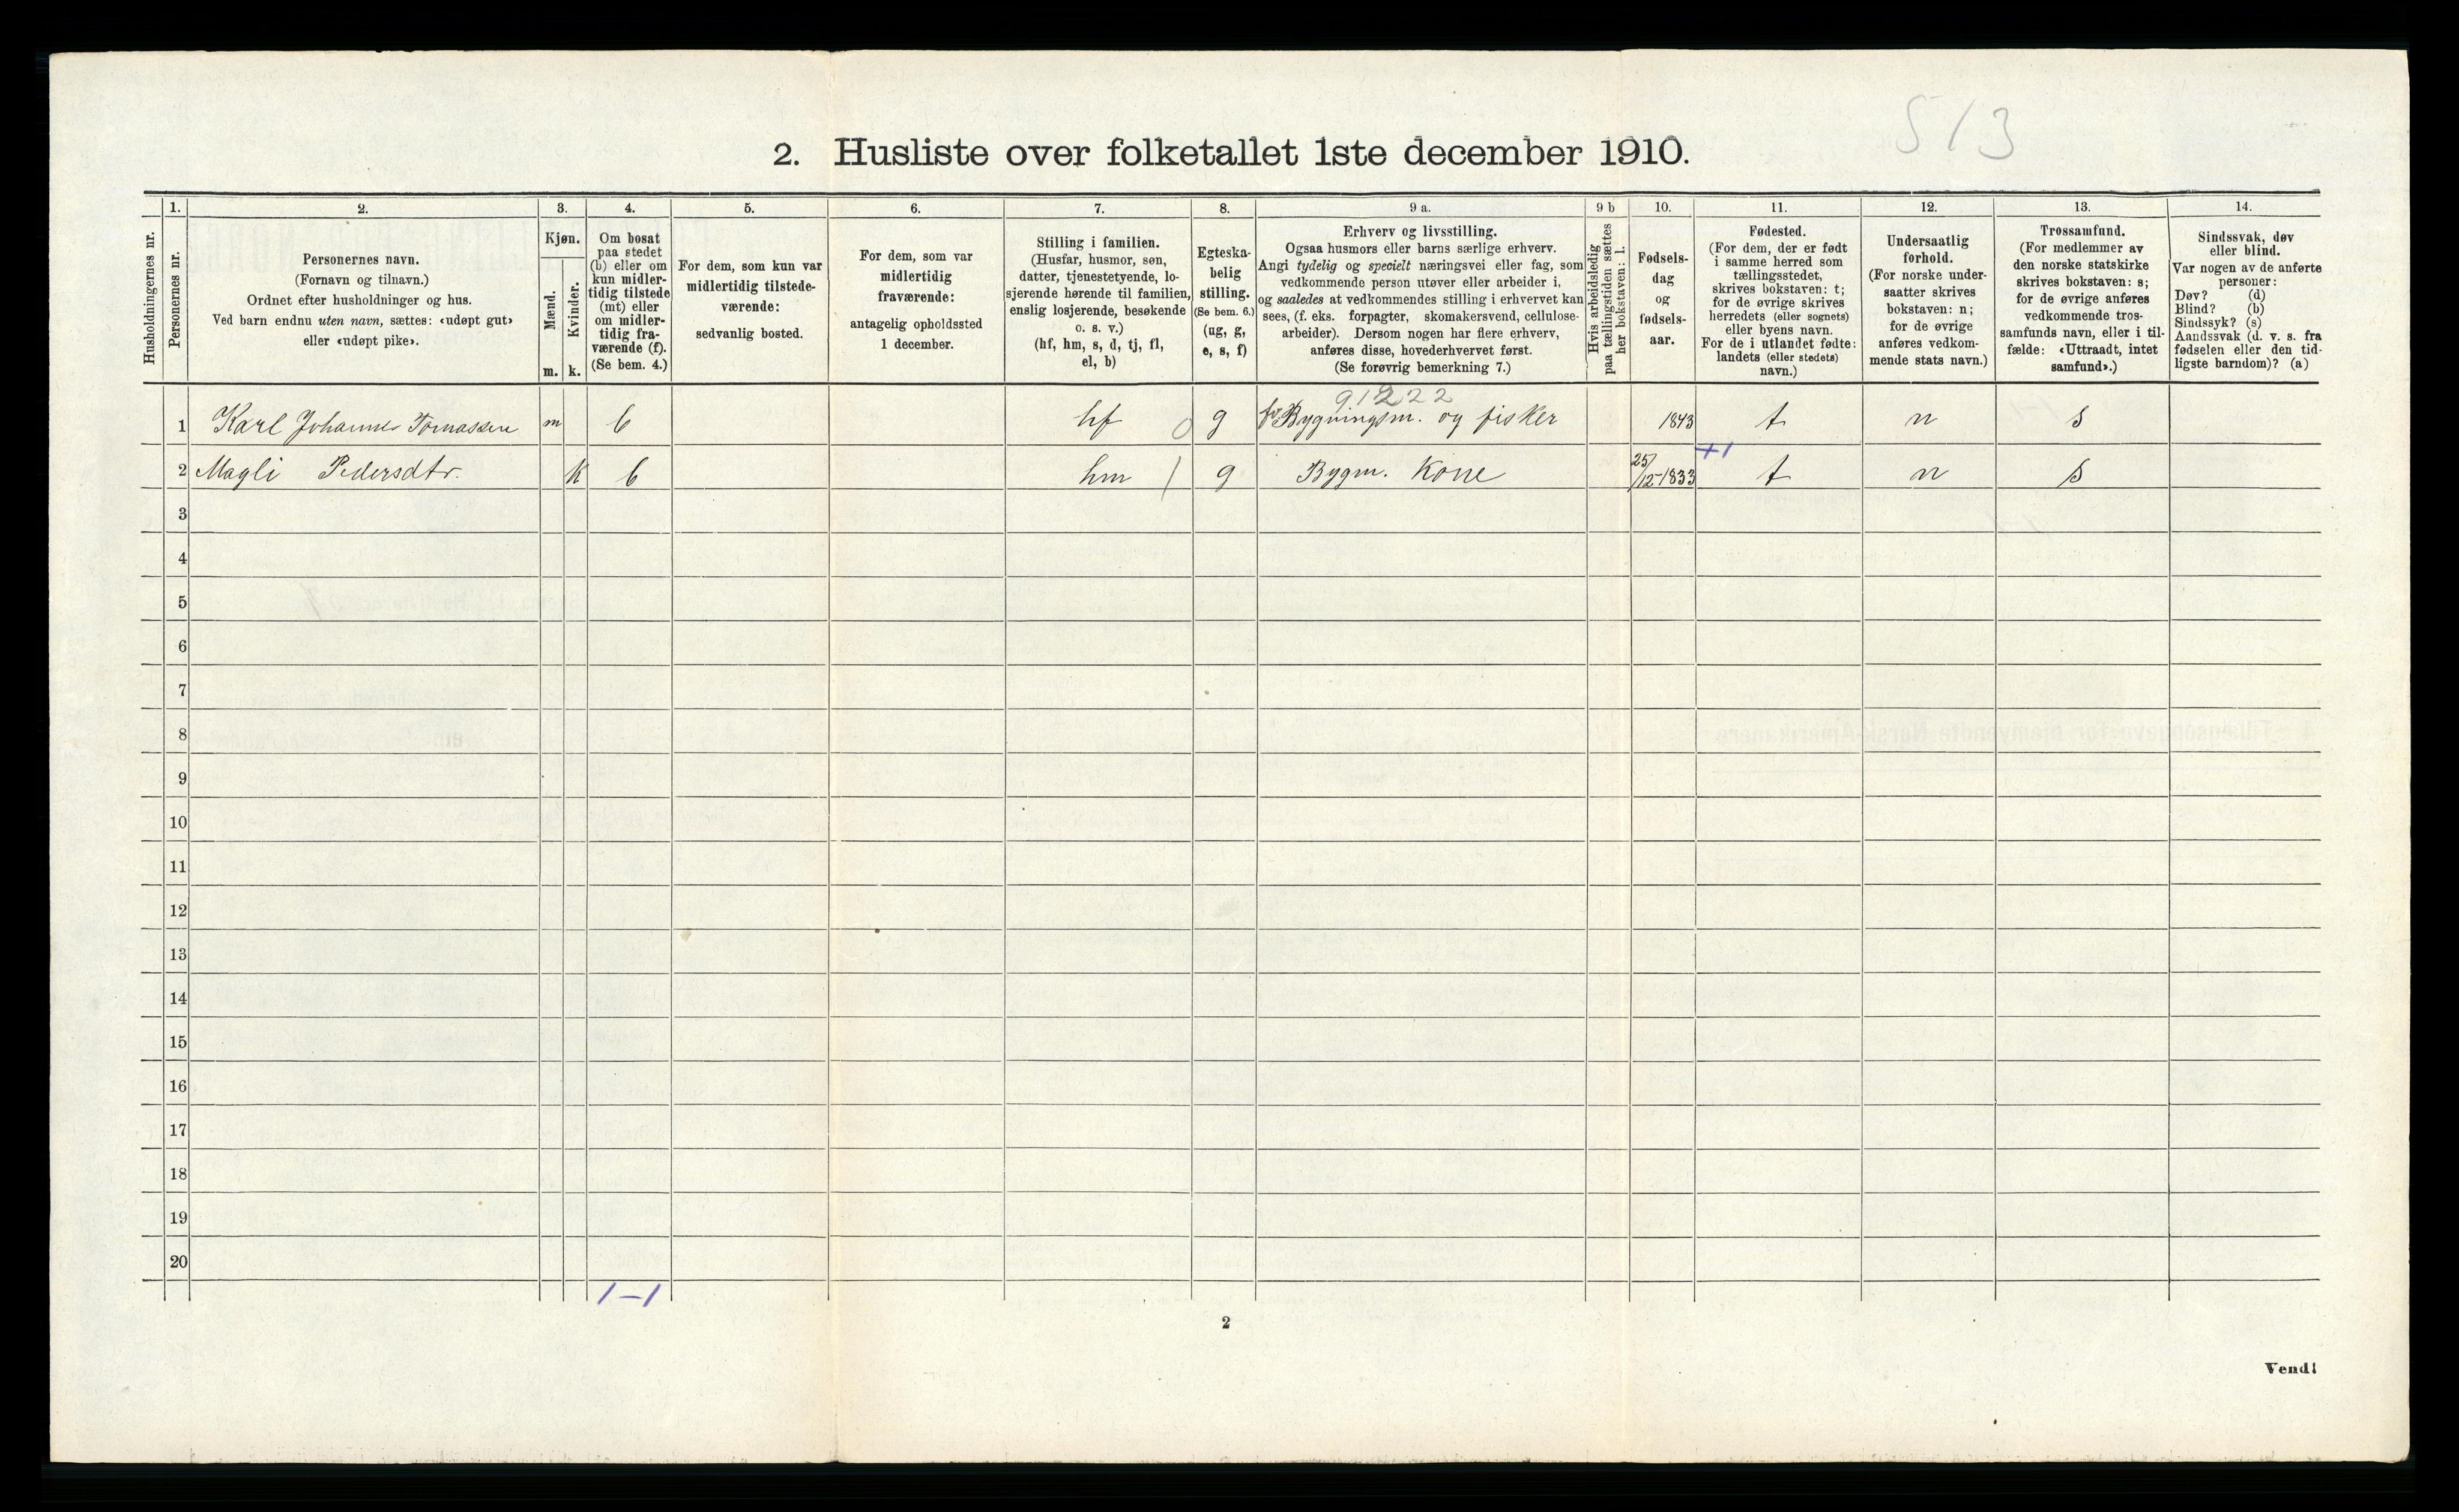 513
2. Husliste over folketallet 1ste december 1910.
Husholdningernes nr.
1.
Personernes nr.
2.
Personernes navn.
(Fornavn og tilnavn.)
Ordnet efter husholdninger og hus.
Ved barn endnu uten navn, sættes: «udøpt gut»
eller «udøpt pike».
3.
Kjøn.
Mænd.
Kvinder.
m.
k.
4.
Om bosat
paa stedet
(b) eller om
kun midler-
tidig tilstede
(mt) eller
om midler-
tidig fra-
værende (f).
(Se bem. 4.)
5.
For dem, som kun var
midlertidig tilstede-
værende:
sedvanlig bosted.
6.
For dem, som var
midlertidig
fraværende:
antagelig opholdssted
1 december.
7.
Stilling i familien.
(Husfar, husmor, søn,
datter, tjenestetyende, lo-
sjerende hørende til familien,
enslig losjerende, besøkende
o. s. v.)
(hf, hm, s, d, tj, fl,
el, b)
8.
Egteska-
belig
stilling.
(Se bem. 6.)
(ug, g,
e, s, f)
9 a.
Erhverv og livsstilling.
Ogsaa husmors eller barns særlige erhverv.
Angi tydelig og specielt næringsvei eller fag, som
vedkommende person utøver eller arbeider i,
og saaledes at vedkommendes stilling i erhvervet kan
sees, (f. eks. forpagter, skomakersvend, cellulose-
arbeider). Dersom nogen har flere erhverv,
anføres disse, hovederhvervet først.
(Se forøvrig bemerkning 7.)
9 b
Hvis arbeidsledig
paa tællingstiden sættes
her bokstaven: l.
10.
Fødsels-
dag
og
fødsels-
aar.
11.
Fødested.
(For dem, der er født
i samme herred som
tællingsstedet,
skrives bokstaven: t;
for de øvrige skrives
herredets (eller sognets)
eller byens navn.
For de i utlandet fødte:
landets (eller stedets)
navn.)
12.
Undersaatlig
forhold.
(For norske under-
saatter skrives
bokstaven: n;
for de øvrige
anføres vedkom-
mende stats navn.)
13.
Trossamfund.
(For medlemmer av
den norske statskirke
skrives bokstaven: s;
for de øvrige anføres
vedkommende tros-
samfunds navn, eller i til-
fælde: «Uttraadt, intet
samfund».)
14.
Sindssvak, døv
eller blind.
Var nogen av de anførte
personer:
Døv? (d)
Blind? (b)
Sindssyk? (s)
Aandssvak (d. v. s. fra
fødselen eller den tid-
ligste barndom)? (a)
91222
1 Karl Johannes Tomassen m b hf 0 g fv. Bygningsm. og fisker 1843 t n s
+1
2 Magli Pedersdtr. k b hm / g Bygm. Kone 25/12-1833 t n s
3
4
5
6
7
8
9
10
11
12
13
14
15
16
17
18
19
20
1-1
2
Vend!